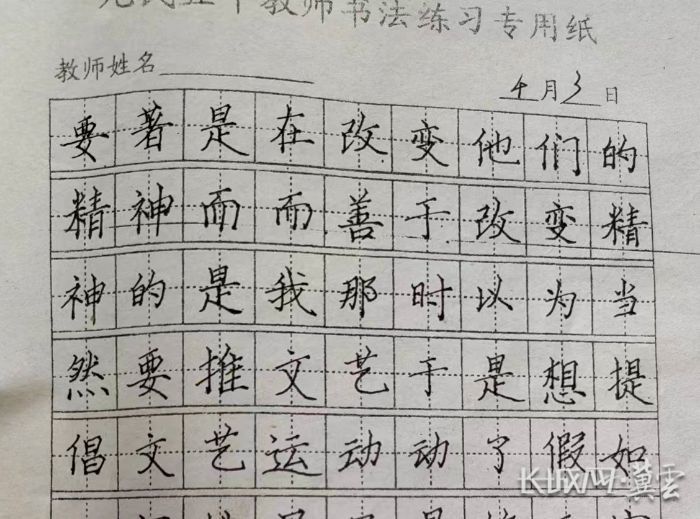 教师书法练习专用纸
教师姓名
4月3日
要著是在改变他们的
精神面而善于改变精
神的是我那时以为当
然要推文艺于是想提
倡文艺运动动了假如